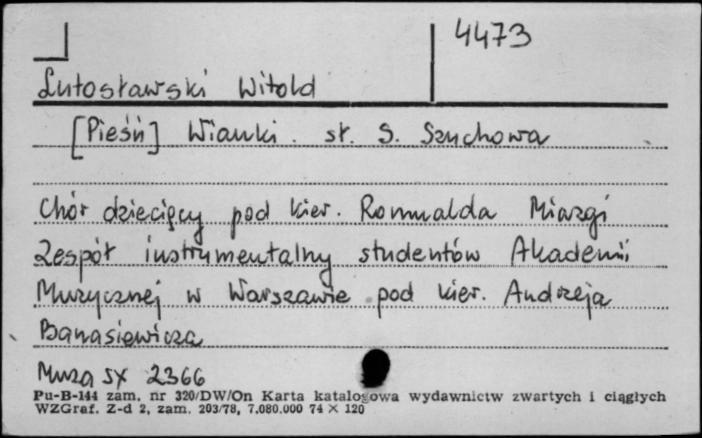 4473
Lutosławski Witold
[Pieśń] Wianki. sł. S. Szuchowa
Chór dziecięcy pod kier. Romualda Miazgi
Zespół instrumentalny studentów Akademii
Muzycznej w Warszawie pod kier. Andrzeja
Banasiewicza
Muza SX 2366
Pu-B-144 zam. nr 320/DW/On Karta katalogowa wydawnictw zwartych i ciągłych
WZGraf. Z-d 2, zam. 203/78, 7.080.000 74 × 120